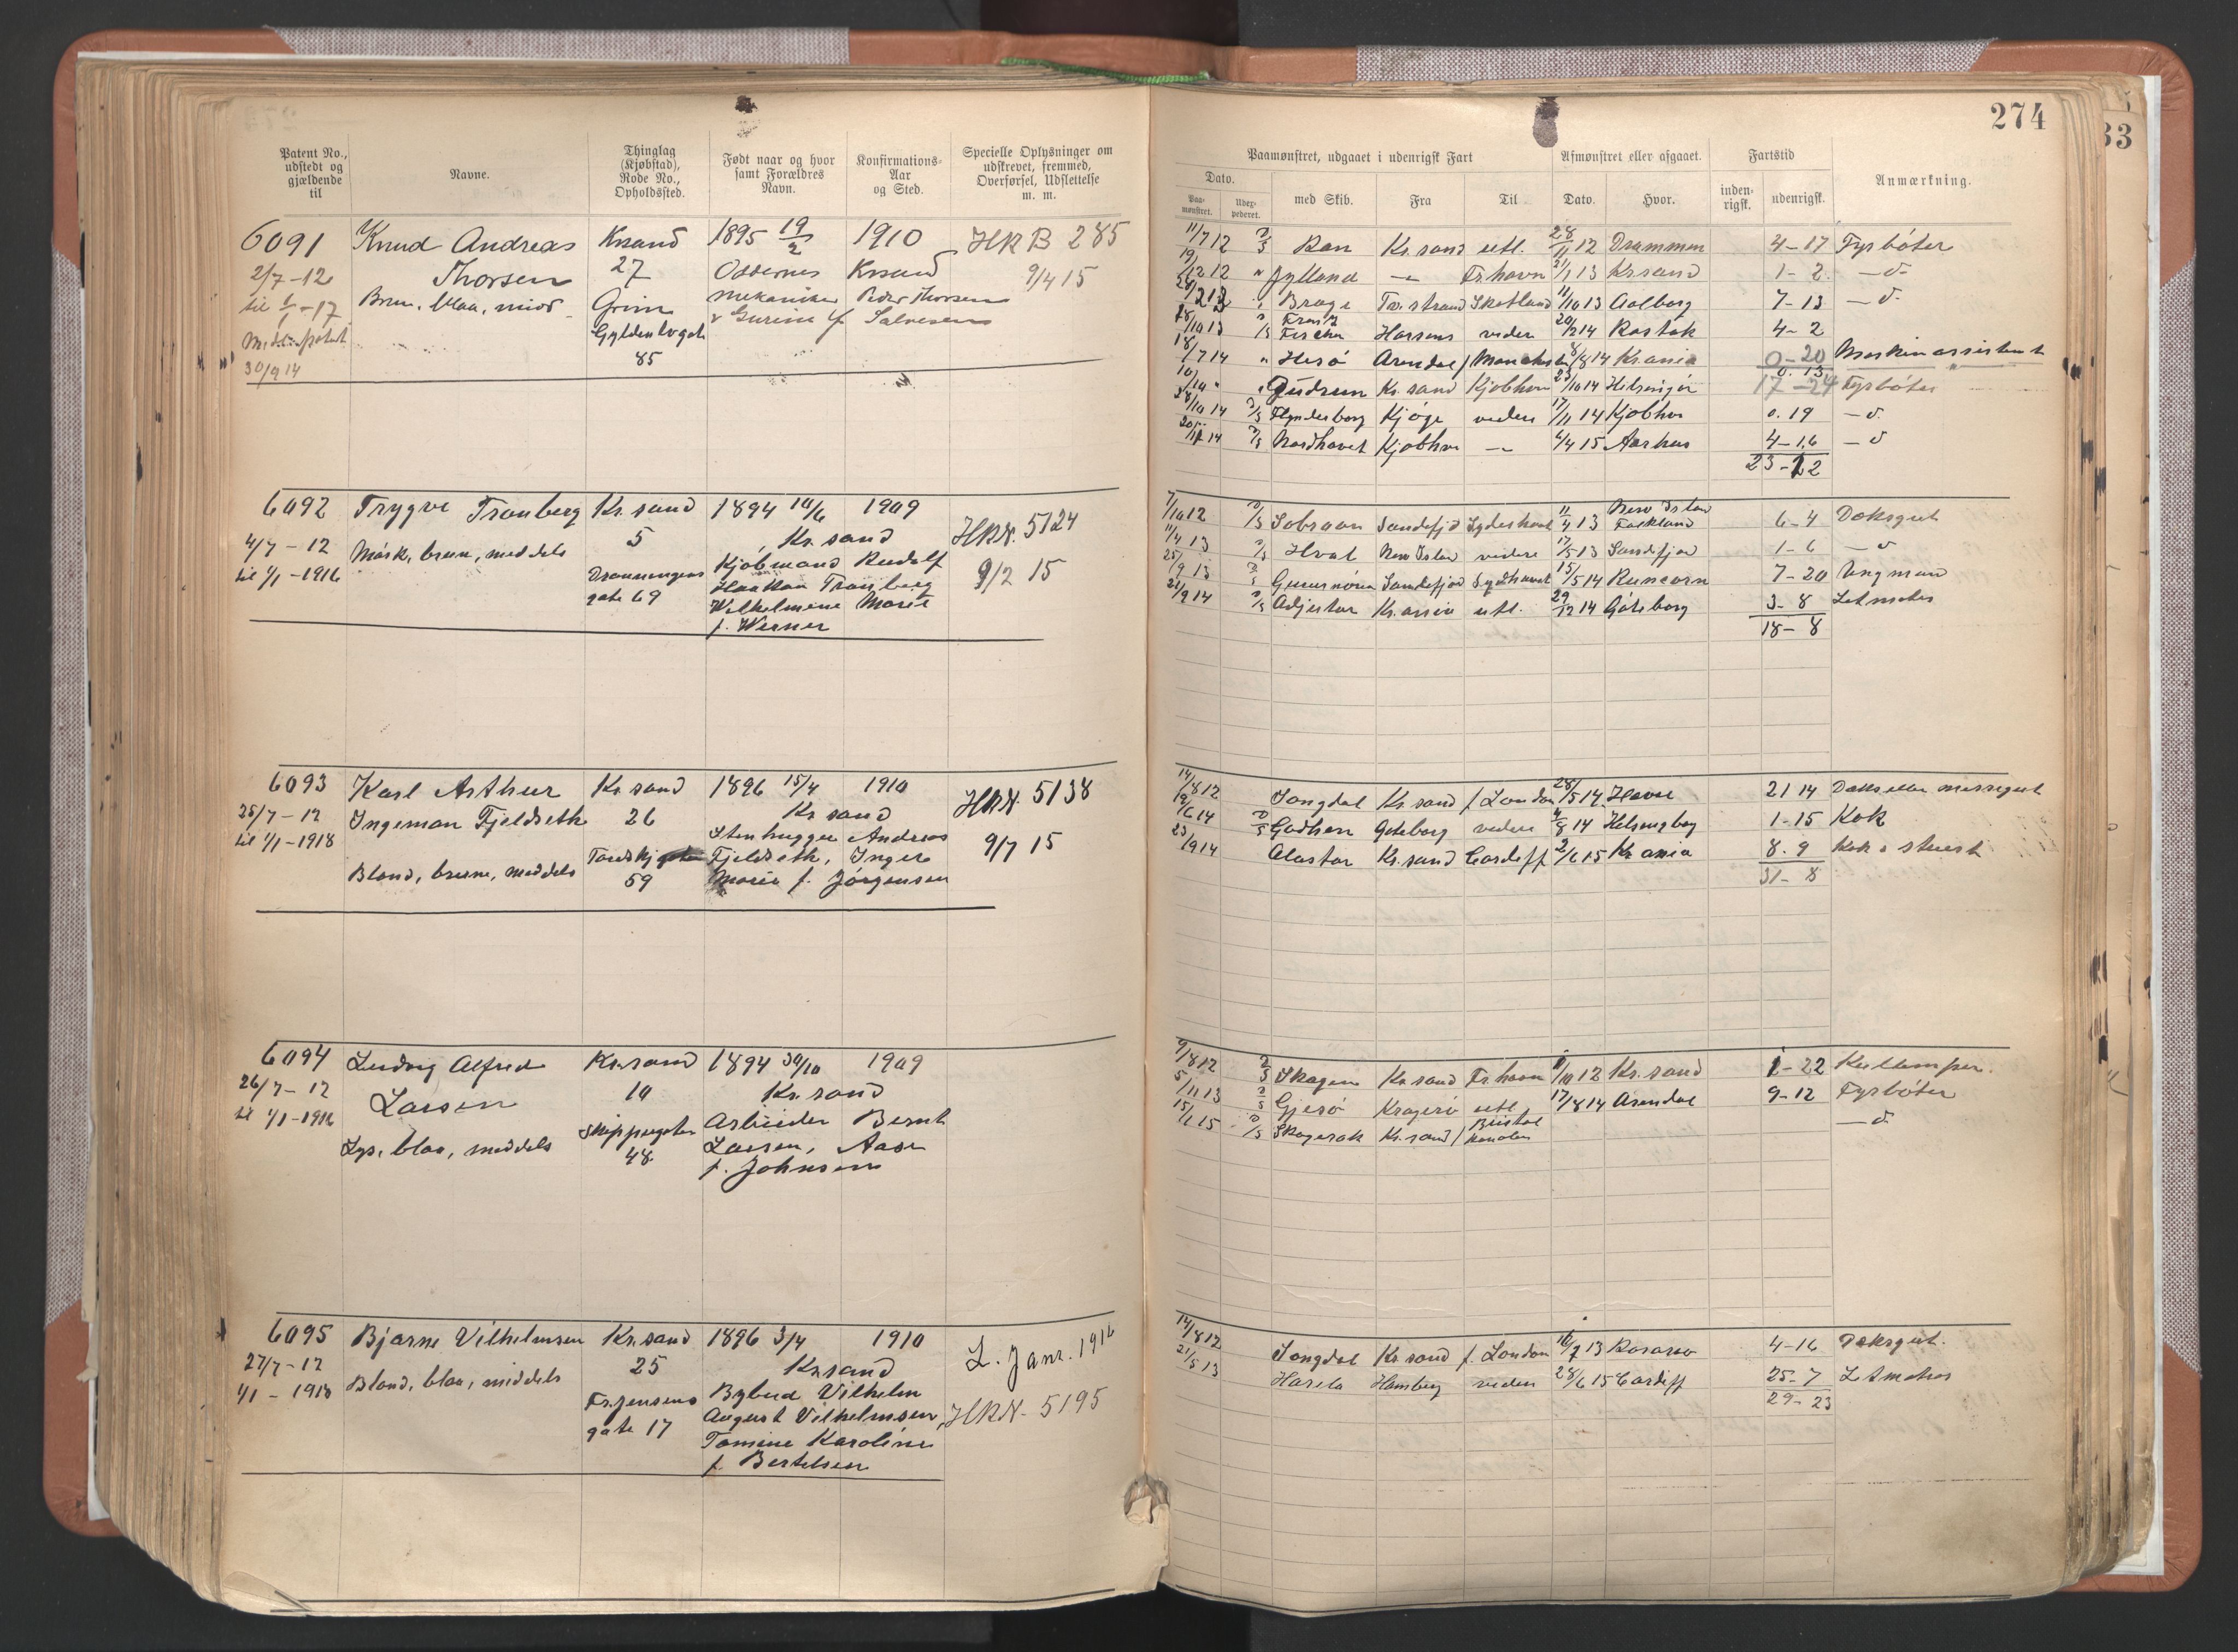 274
33
Patent No., udstedt og gjældende til
Navne.
Thinglag (Kjøbstad), Rode No., Opholdssted.
Født naar og hvor samt Forældres Navn.
Konfirmations- Aar og Sted.
Specielle Oplysninger om udskrevet, fremmed, Overførsel, Udslettelse m. m.
Paamønstret, udgaaet i udenrigsk Fart
Afmønstret eller afgaaet.
Fartstid
Anmærkning.
Dato.
Paa- mønstret.
Udex- pederet.
med Skib.
Fra
Til
Dato.
Hvor.
inden- rigsk.
udenrigsk.
6091 Knud Andreas Krsand 1895 19/2 1910 HRB 285
2/7-12 Thorsen 27 Oddernes Krsand 9/4 15
til 1/1-17 Brun, blaa, midd Grim Mekaniker Peder Thorsen
Gyldenlvgate & Gurine f Salvesen
85
30/9 14
11/7 12 Ran Kr.sand utl. 28/11 12 Drammen 4-17 Fyrbøter
19/12 12 " Jylland -"- Fr.havn 21/1 13 Krsand 1-2 -d-
Brage Tv.strand Skotland 11/10 13 Aalborg 7-13 -d-
18/10 13 Franz Fischer Horsens videre 20/2 14 Rostok 4-2
18/7 14 " Hesø Arendal / Manchester 8/8 14 Kr.ania 0-20 Maskinassistent
0.13
10/ " Gudrun Kr.sand Kjøbhvn 23/10 14 Helsingør 17-24 Fyrbøter
28/10 14 Flynderborg Kjøge videre 17/11 14 Kjøbhvn 0.19 -d-
20/11 14 Nordhavet Kjøbhvn -"- 6/4 15 Aarhus 4-16 -d
23-12
6092 Trygve Tronberg Kr.sand 1894 10/6 1909 HRN. 5124
4/7-12 Mørk, brun, meddels 5 Kr.sand 9/2 15
til 1/1-1916 Dronningens gate 69 Kjøbmand Rudolf
Haakon Tronberg
Wilhelmine Marie
f. Werner
7/10 12 Sobraon Sandefjd Sydishavet 11/4 13 New Island Falkland 6-4 Dæksgut
11/4 13 Hval New Island videre 17/5 13 Sandefjord 1-6 -d
25/9 13 Sandefjord Sydhavet 15/5 14 Runcorn 7-20 Ungmand
21/9 14 Adjutor Kr.ania utl. 29/12 14 Göteborg 3-8 Letmatros
18-8
6093 Karl Arthur Kr.sand 1896 15/4 1910 HRN. 5138
25/7-12 Ingeman Fjeldseth 26 Kr sand 9/7 15
til 1/1-1918 Stenhugger Andreas
Blond, brune, meddels 59 Fjeldseth, Inger
Marie f. Jørgensen
14/8 12 Songdal Kr.sand f. London 28/5 14 Havre 21 14 Dæks eller messegut
19/6 14 Godhem Gøteborg videre 9/8 14 Helsingborg 1-15 Kok
23/9 14 Alastor Kr.sand Cardiff 2/6 15 Kr.ania 8.9 Kok & stuert
31-8
6094 Ludvig Alfred Kr.sand 1894 30/10 1909
26/7-12 Larsen 10 Kr.sand
til 1/1-1916 Skippergaten 48 Arbeider Bernt
Lys, blaa, meddels Larsen, Aase
f. Johnsen
9/8 12 Skagen Kr.sand Fr.havn 9/10 12 Kr.sand 1-22 Kullemper.
5/11 13 Gjesø Kragerø utl. 17/8 14 Arendal 9-12 Fyrbøter
15/1 15 Skagerak Kr.sand / Bristol kanalen -d-
6095 Bjarne Vilhelmsen Kr.sand 1896 3/4 1910 L. Janr. 1916
27/7-12 Blond, blaa, middels 25 Kr.sand
1/1-1918 Fr.Jensens gate 17 Bybud Vilhelm
August Vilhelmsen, HRN. 5195
Tomine Karoline
f. Bertelsen
14/8 12 Songdal Kr.sand f. London 16/7 13 Rosario 4-16 Dæksgut.
21/5 13 Hamburg videre 28/6 15 Cardiff 25-7 Letmatros
29-23